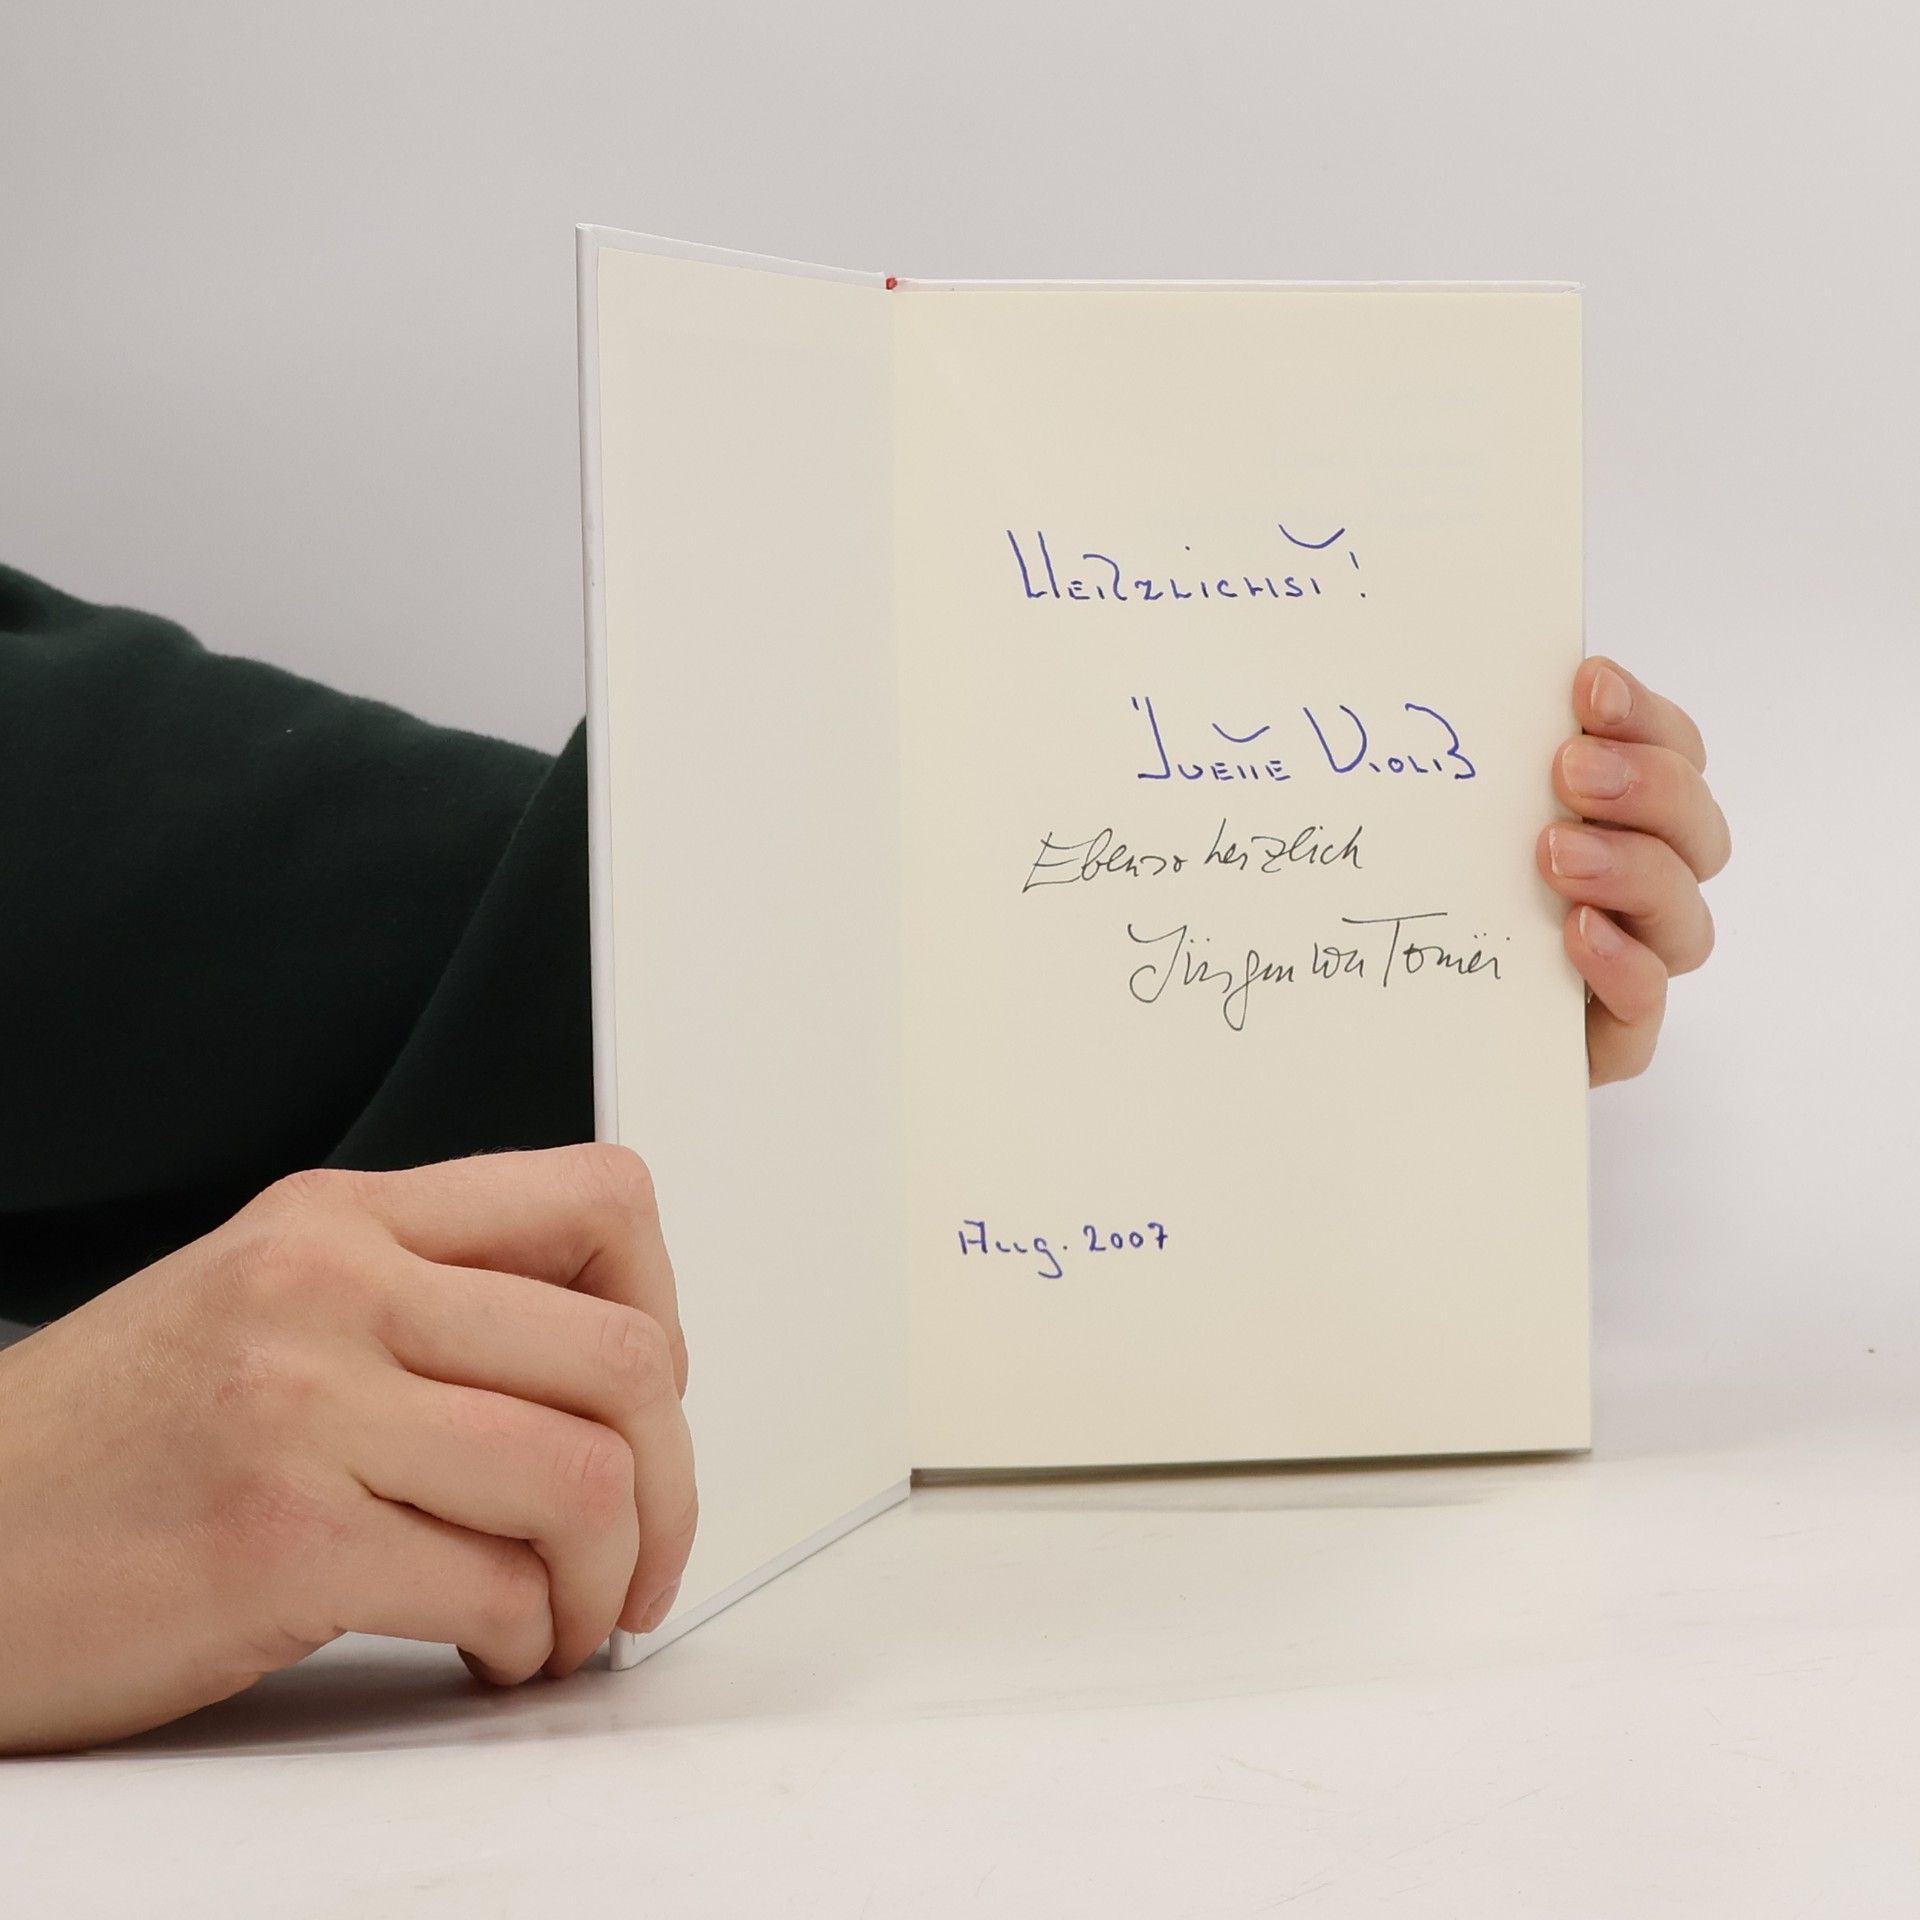 HERZLICHST!
YVETTE KOLB
Ebenso herzlich
Jürgen von Tomëi
Aug. 2007